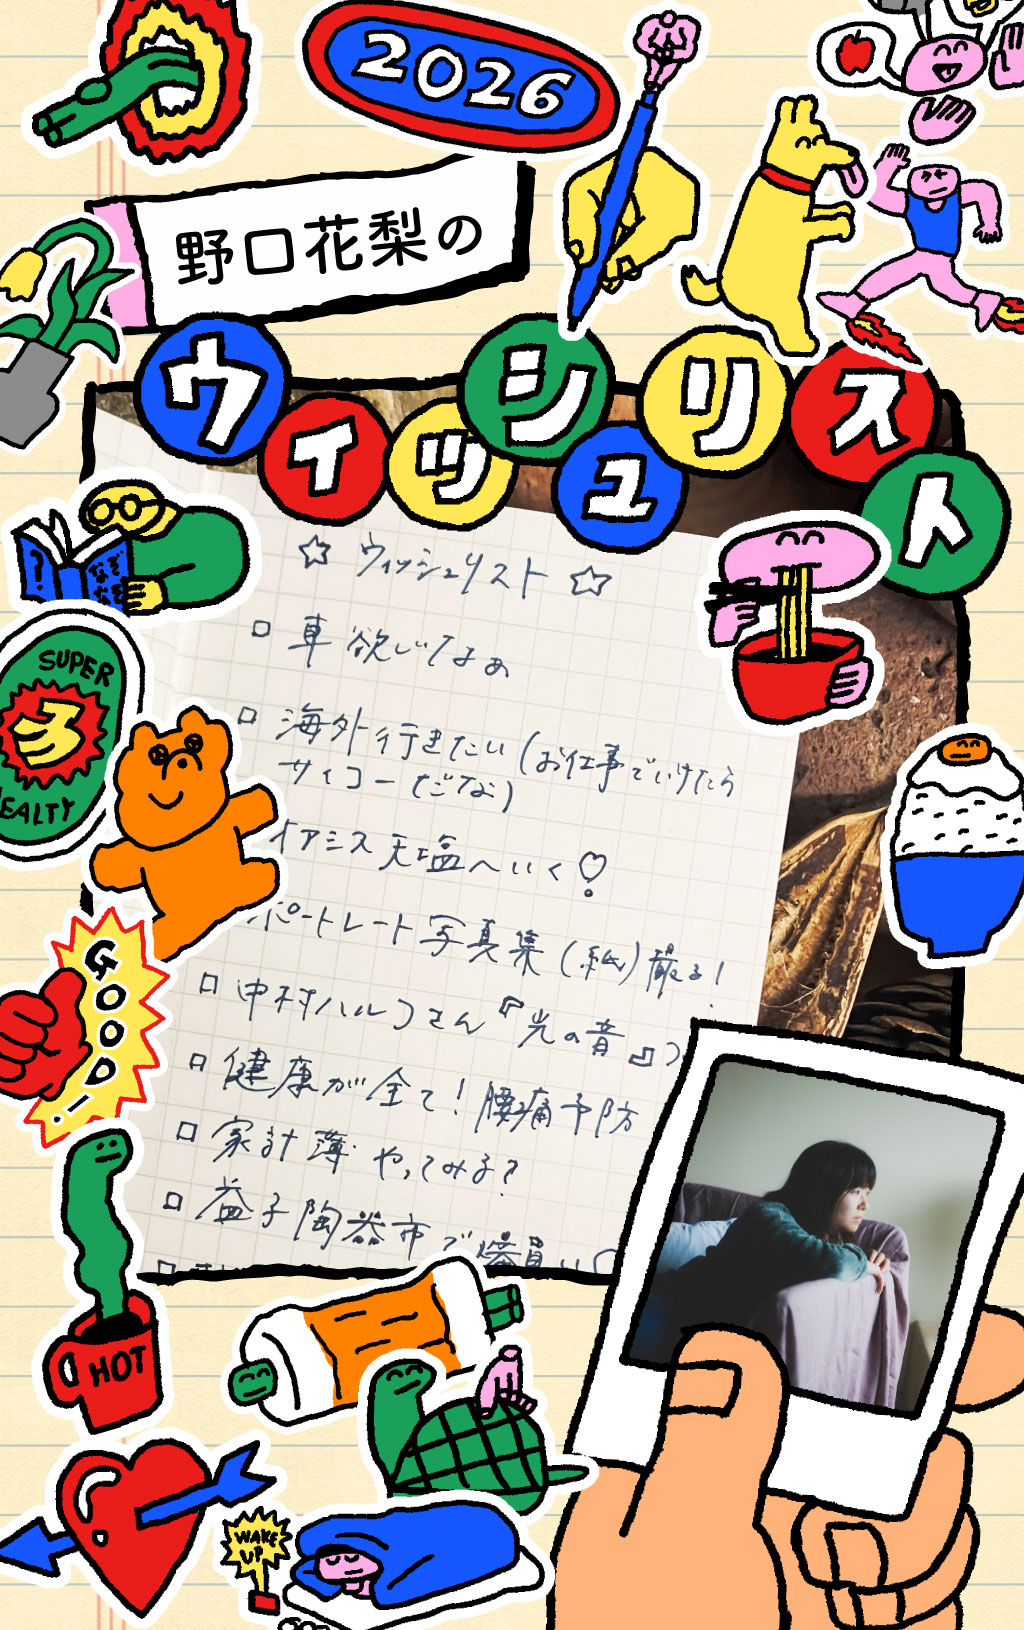 2026
野口花梨の
ウィッシュリスト
☆ ウィッシュリスト ☆
□ 車欲しいなぁ
□ 海外行きたい(お仕事でいけたら
サイコーだな)
イアミス天塩へいく♡
ポートレート写真集(紙)撮る!
□ 中村ハルコさん『光の音』
□ 健康が全て!腰痛予防
□ 家計簿やってみる?
□ 益子陶器市で爆買い
なぞなぞ
?
SUPER
EALTY
GOOD!
HOT
WAKE
UP